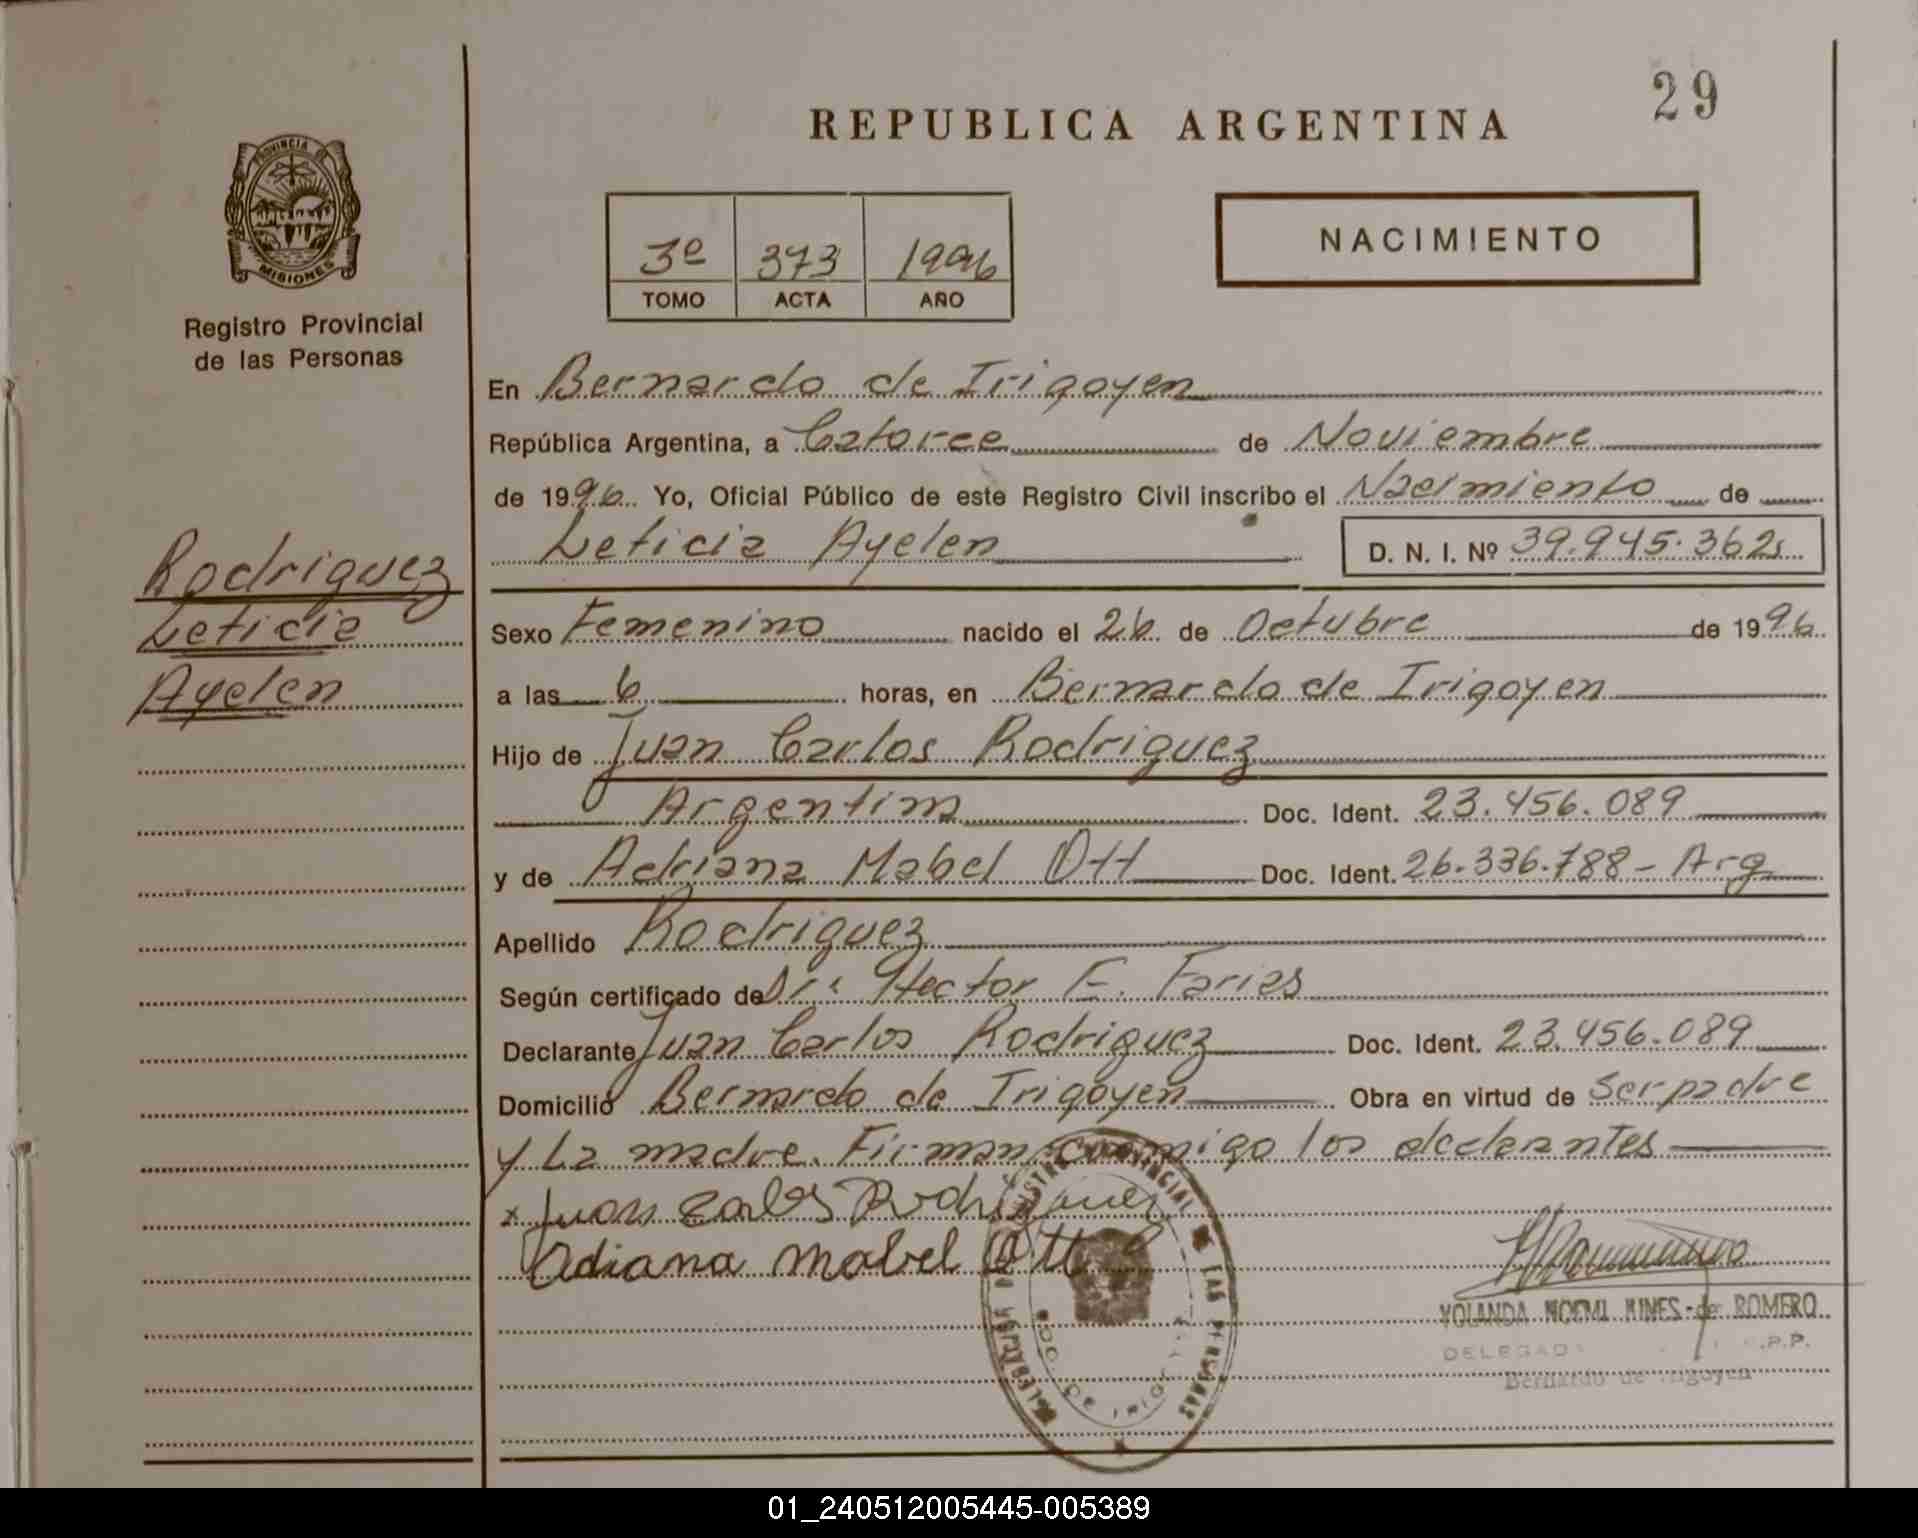 29
REPUBLICA ARGENTINA
PROVINCIA DE
MISIONES
Registro Provincial
de las Personas
NACIMIENTO
3º 373 1996
TOMO ACTA AÑO
En Bernardo de Irigoyen
República Argentina, a Catorce de Noviembre
de 1996 Yo, Oficial Público de este Registro Civil inscribo el Nacimiento de
Leticia Ayelen D. N. I. Nº 39.945.362
Rodriguez
Leticia
Ayelen
Sexo Femenino nacido el 26 de Octubre de 1996
a las 6 horas, en Bernardo de Irigoyen
Hijo de Juan Carlos Rodriguez
Argentina Doc. Ident. 23.456.089
y de Adriana Mabel Ott Doc. Ident. 26.336.788 - Arg
Apellido Rodriguez
Según certificado de Dr: Hector E. Farias
Declarante Juan Carlos Rodriguez Doc. Ident. 23.456.089
Domicilio Bernardo de Irigoyen Obra en virtud de Ser padre
y La madre. Firman conmigo los declarantes
x Juan Carlos Rodriguez
Adiana Mabel Ott
YOLANDA NOEMI de ROMERO
DELEGADA R.P.P.
Bernardo de Irigoyen
DELEGACION REGISTRO PROVINCIAL DE LAS PERSONAS
BDO. DE IRIGOYEN
01_240512005445-005389